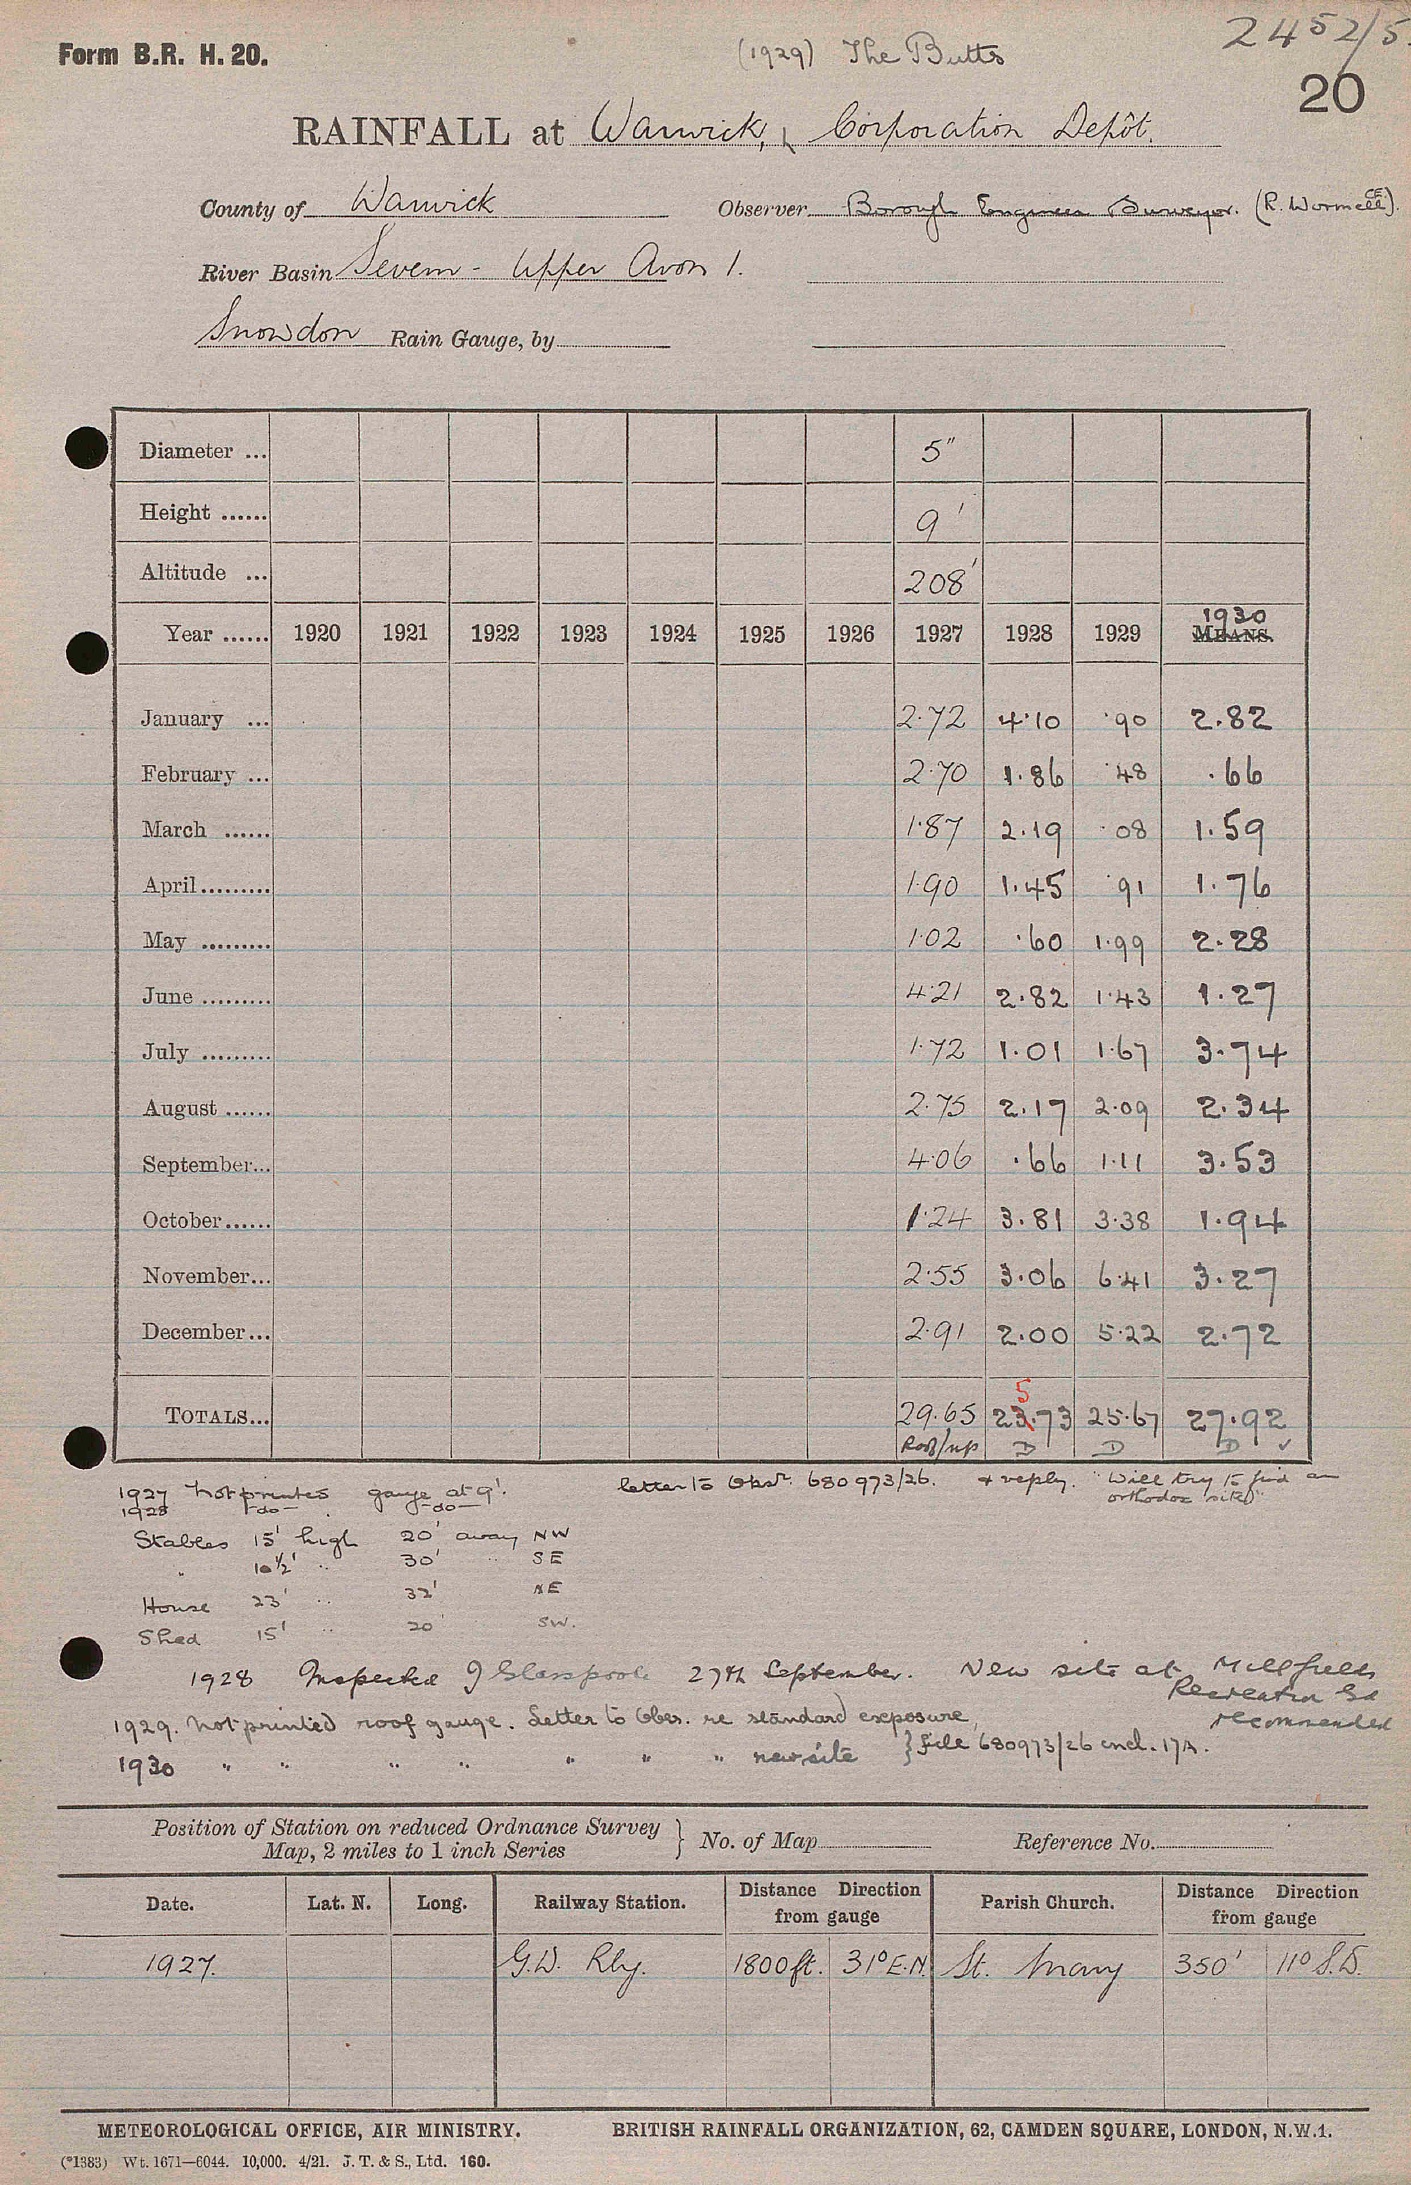 2452/5.
Form B.R. H. 20.
(1929) The Butts
20
RAINFALL at Warwick, Corporation Depôt.
County of Warwick Observer Borough Engineer Surveyor. (R. Wormell).
River Basin Severn - Upper Avon 1.
Snowdon Rain Gauge, by
Diameter ... 5"
Height ...... 9'
Altitude ... 208'
1930
Year ...... 1920 1921 1922 1923 1924 1925 1926 1927 1928 1929 MEANS.
January ... 2.72 4.10 .90 2.82
February ... 2.70 1.86 .48 .66
March ...... 1.87 2.19 .08 1.59
April ......... 1.90 1.45 .91 1.76
May ......... 1.02 .60 1.99 2.28
June ......... 4.21 2.82 1.43 1.27
July ......... 1.72 1.01 1.67 3.74
August ...... 2.75 2.17 2.09 2.34
September... 4.06 .66 1.11 3.53
October...... 1.24 3.81 3.38 1.94
November... 2.55 3.06 6.41 3.27
December... 2.91 2.00 5.22 2.72
5
TOTALS... 29.65 23.73 25.67 27.92
Roof/np D D D ✓
1927 not printed gauge at 9'. letter to Obsr. 680973/26. & reply. "Will try to find an
1928 -do- -do- orthodox site"
Stables 15' high 20' away NW
" 10½' " 30' " SE
House 23' " 32' NE
Shed 15' " 20' SW.
1928 Inspected J Glasspoole 27th September. New site at Millfields
Recreation Gd
recommended
1929. not printed roof gauge. Letter to Obsr. re standard exposure,
1930 " " " " " " " new site } file 680973/26 encl. 17A.
Position of Station on reduced Ordnance Survey
Map, 2 miles to 1 inch Series } No. of Map Reference No.
Date. Lat. N. Long. Railway Station. Distance Direction from gauge Parish Church. Distance Direction from gauge
1927. G.W. Rly. 1800 ft. 31° E.N. St. Mary 350' 11° S.W.
METEOROLOGICAL OFFICE, AIR MINISTRY. BRITISH RAINFALL ORGANIZATION, 62, CAMDEN SQUARE, LONDON, N.W.1.
(*1383) Wt. 1671—6044. 10,000. 4/21. J. T. & S., Ltd. 160.